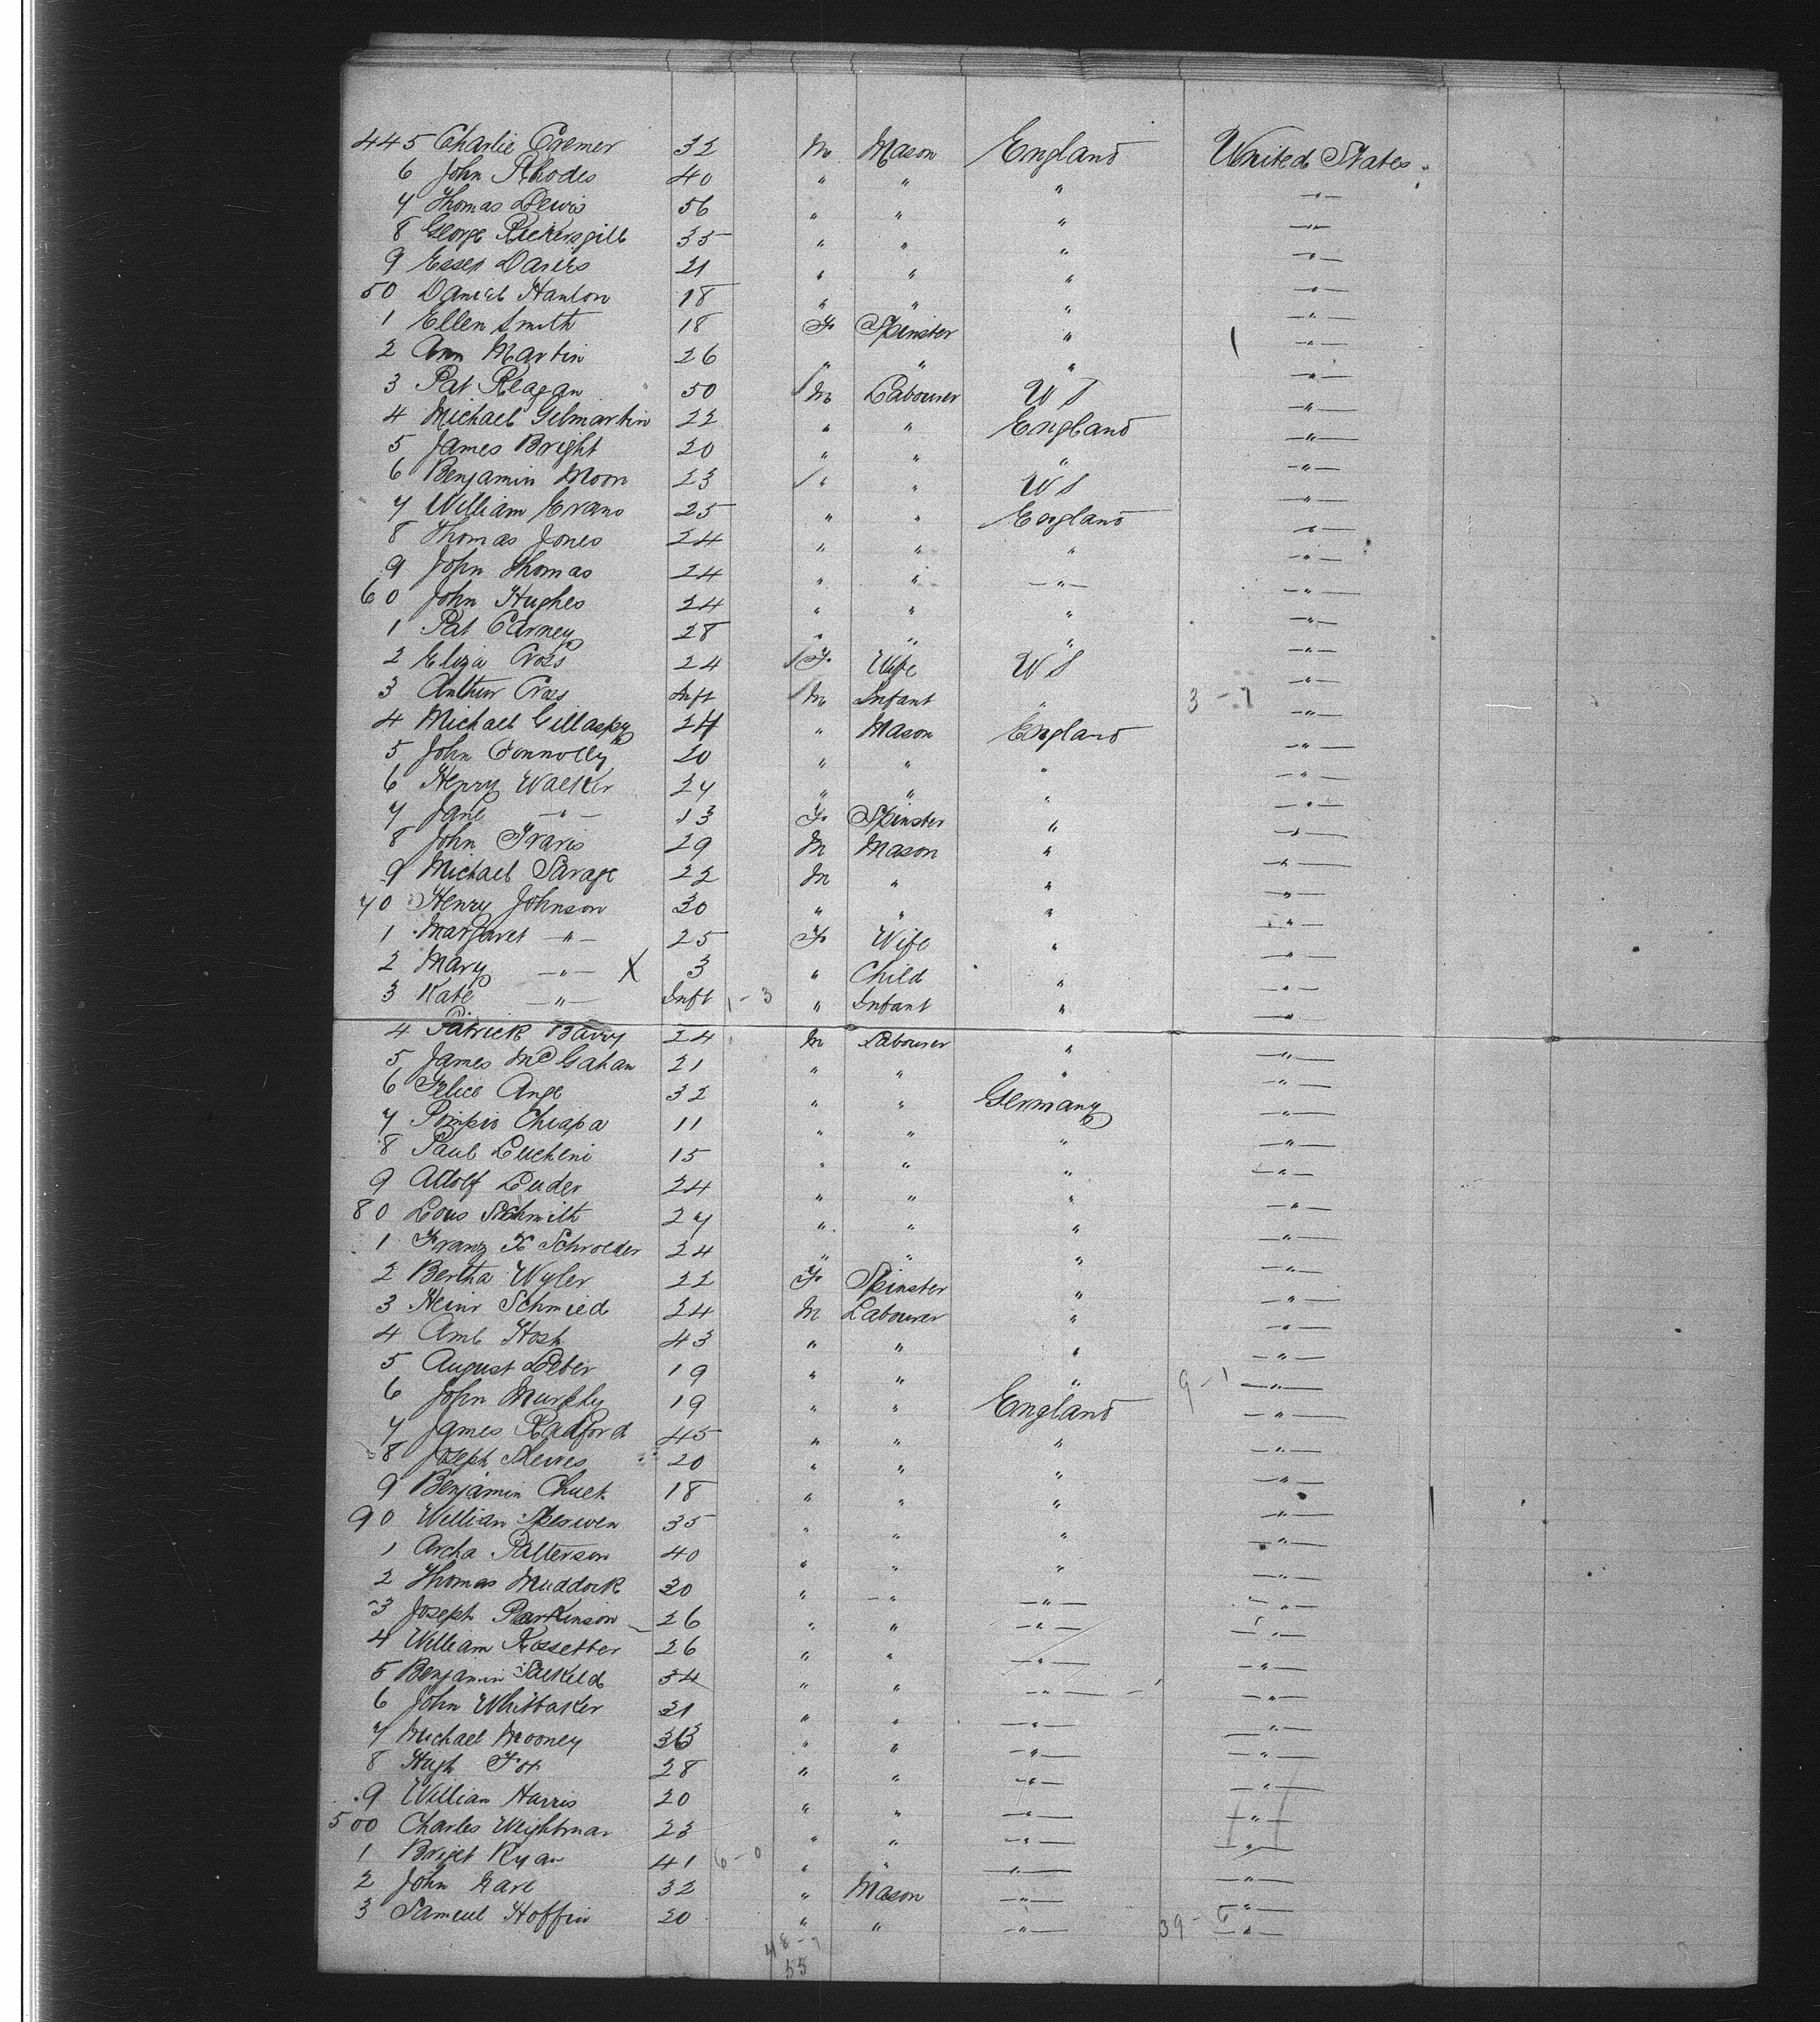 445 Charlie Cremer 32 M Mason England United States
6 John Rhodes 40 " " " — " —
7 Thomas Lewis 56 " " " — " —
8 George Pickersgill 35 " " " — " —
9 Esser Davies 21 " " " — " —
50 Daniel Hanlon 18 " " " — " —
1 Ellen Smith 18 F Spinster " — " —
2 Ann Martin 26 " " " — " —
3 Pat Reagan 50 M Labourer US — " —
4 Michael Gilmartin 22 " " England — " —
5 James Bright 20 " " " — " —
6 Benjamin Moon 23 " " US — " —
7 William Evans 25 " " England — " —
8 Thomas Jones 24 " " " — " —
9 John Thomas 24 " " — " — — " —
60 John Hughes 24 " " " — " —
1 Pat Carney 28 " " " — " —
2 Eliza Cross 24 F Wife US — " —
3 Arthur Cross Inft M Infant " 3 - 1 — " —
4 Michael Gillaspy 24 " Mason England — " —
5 John Connolly 20 " " " — " —
6 Henry Walker 27 " " " — " —
7 Jane — " — 13 F Spinster " — " —
8 John Travis 29 M Mason " — " —
9 Michael Savage 22 M " " — " —
70 Henry Johnson 30 " " " — " —
1 Margaret — " — 25 F Wife " — " —
2 Mary — " — X 3 " Child " — " —
3 Kate — " — Inft 1 - 3 " Infant " — " —
4 Patrick Barry 24 M Labourer " — " —
5 James McGahan 21 " " " — " —
6 Felice Ange 32 " " Germany — " —
7 Pompio Chiapa 11 " " " — " —
8 Paul Lucheni 15 " " " — " —
9 Adolf Luder 24 " " " — " —
80 Lous Schmith 27 " " " — " —
1 Franz X Schroeder 24 " " " — " —
2 Bertha Wyler 22 F Spinster " — " —
3 Heinr Schmied 24 M Labourer " — " —
4 Amb Hosh 43 " " " — " —
5 August Leber 19 " " " 9 - 1 — " —
6 John Murphy 19 " " England — " —
7 James Radford 45 " " " — " —
8 Joseph 20 " " " — " —
9 Benjamin 18 " " " — " —
90 William 35 " " " — " —
1 Archa Patterson 40 " " " — " —
2 Thomas Muddock 30 " — " — " — — " —
3 Joseph Parkinson 26 " " — " — — " —
4 William Rossetter 26 " " — " — — " —
5 Benjamin Salkeld 34 " " — " — — " —
6 John Whittaker 21 " " — " — — " —
7 Michael Mooney 33 " " — " — — " —
8 Hugh Fox 28 " " — " — — " —
9 William Harris 20 " " — " — — " —
500 Charles Weightman 23 " " — " — — " —
1 Briget Ryan 41 6 - 0 " " — " — — " —
2 John Earl 32 " Mason — " — — " —
3 Samuel Hoffin 20 " " — " — 39 - 6 — " —
48 - 7
55